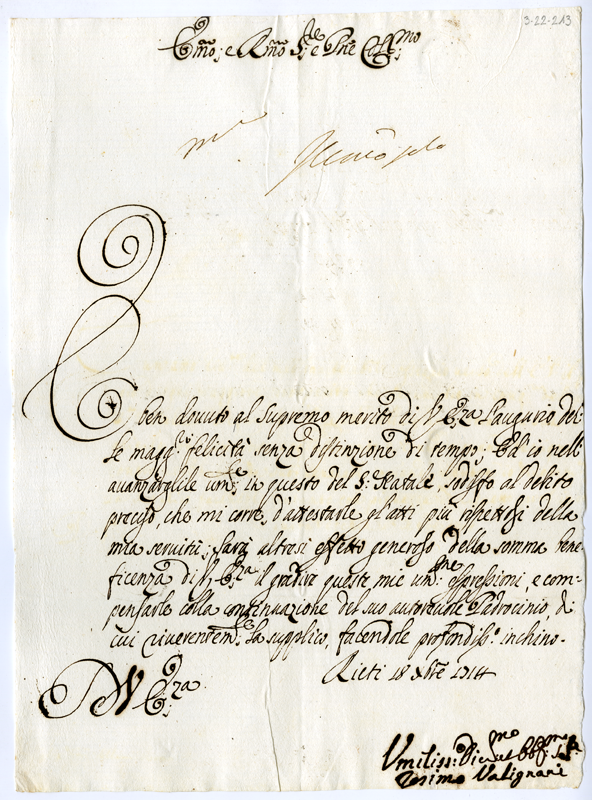 3-22-213
Em̃o; e Rm̃o Sig.re e Pñe Col.mo;
È ben douuto al supremo merito di V. Em.za l'augurio del-
le magg.ri felicità senza distinzione di tempo; Ed io nell'
auanzarglile um.te in questo del S: Natale, sodisfo al debito
preciso, che mi corre, d'attestarle gl'atti più rispettosi della
mia seruitù; sarà altresì effetto generoso della somma bene-
ficenza di V. Em.za il gradire queste mie um.me espressioni, e com-
pensarle colla continuazione del suo autoreuole Padrocinio, di
cui riuerentem.te la supplico, facendole profondiss.o inchino.
Rieti 18 Xbre 1714
D V Em.za;
Umiliss: Diu.mo et Obb.mo
Valignani